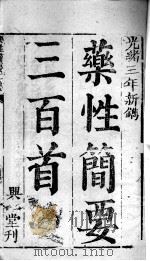 光緒三年新鐫
藥性簡要
三百首
興 堂刊
www.modernhistory.org.cn